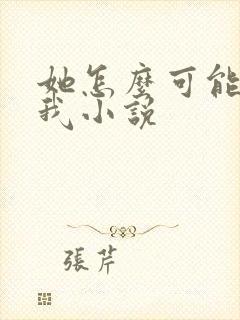 她怎麼可能
我小說
張芹